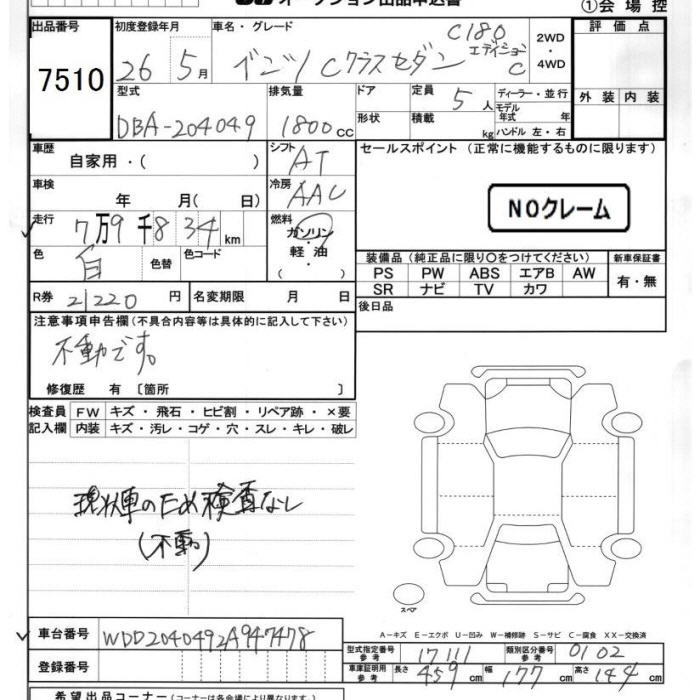 オークション出品申込書
①会場控
出品番号
7510
初度登録年月
26 5月
車名・グレード
ベンツ Cクラスセダン
C180
エディション
C
2WD
・
4WD
評価点
外装 内装
型式
DBA-204049
排気量
1800cc
ドア
形状
定員 5人
積載 kg
ディーラー・並行
モデル年式 年
ハンドル 左・右
車歴
自家用・( )
シフト
AT
車検
年 月( 日)
冷房
AAC
走行
7万9千834km
燃料
ガソリン
・
軽油
( )
色
白
色替
色コード
R券 21220円
名変期限 月 日
セールスポイント (正常に機能するものに限ります)
NOクレーム
装備品 (純正品に限り〇をつけてください)
新車保証書
PS PW ABS エアB AW
有・無
SR ナビ TV カワ
後日品
注意事項申告欄(不具合内容等は具体的に記入して下さい)
不動です。
修復歴 有 〔箇所 〕
検査員 FW キズ・飛石・ヒビ割・リペア跡・×要
記入欄 内装 キズ・汚レ・コゲ・穴・スレ・キレ・破レ
現状車のため検査なし
(不動)
スペア
A−キズ E−エクボ U−凹み W−補修跡 S−サビ C−腐食 XX−交換済
車台番号 WDD2040492A947478
型式指定番号 参考 17111
類別区分番号 参考 0102
登録番号
車庫証明用 参考 長さ 459cm 幅 177cm 高さ 144cm
希望出品コーナー(コーナーは各会場により